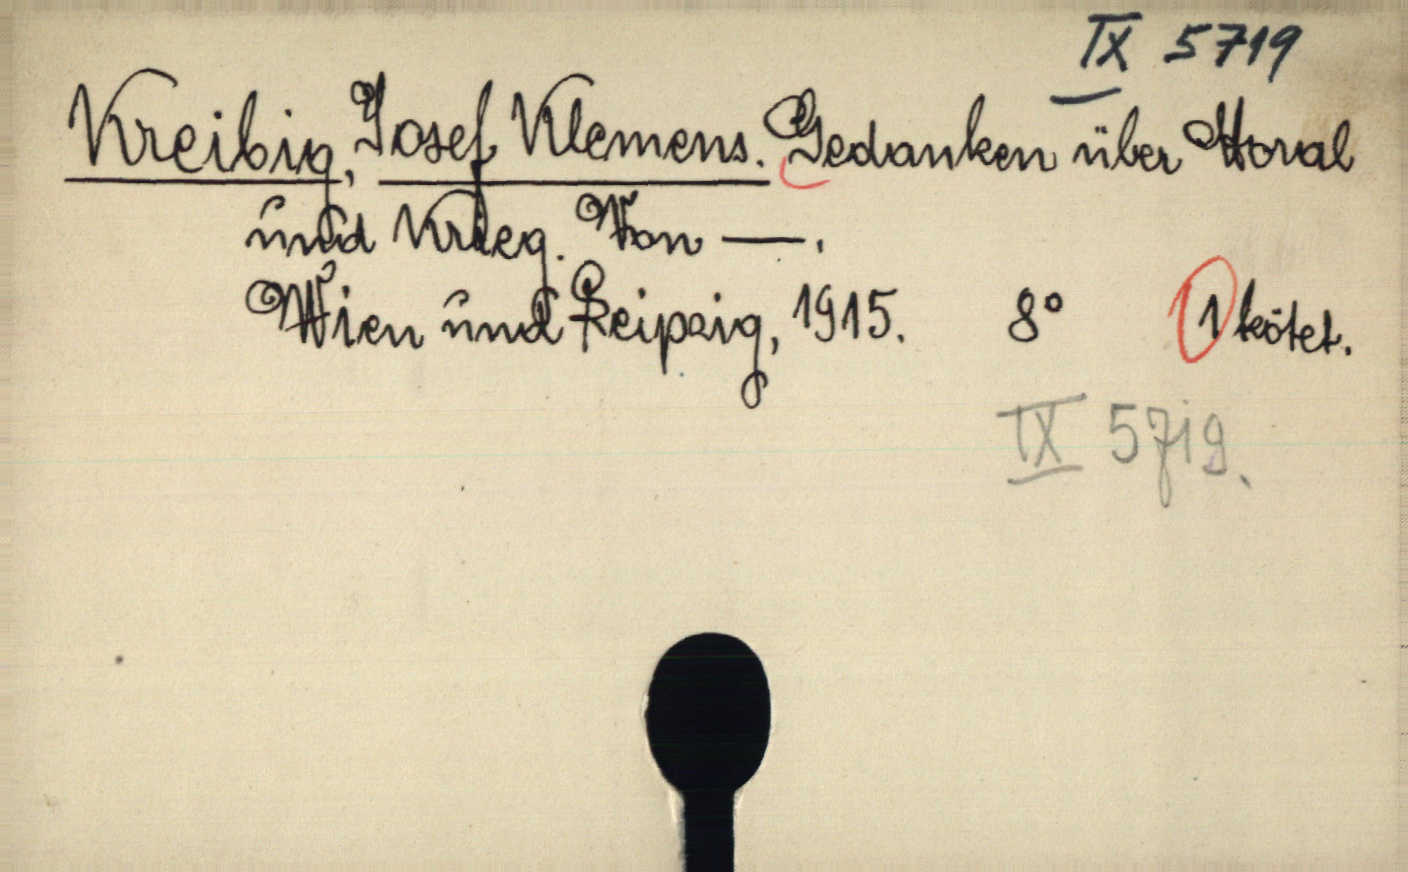 IX 5719
Kreibig, Josef Klemens. Gedanken über Moral
und Krieg. Von —.
Wien und Leipzig, 1915. 8° 1 kötet.
IX 5719.